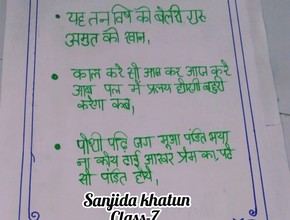 • यह तन विष की बेलरी गुरु
अमृत की खान,
• काल करै सौ आज कर, आज करै
अब पल में प्रलय होएगी बहुरी
करेगा कब,
• पोथी पढ़ि जग मुआ पंडित भया
ना कोय ढाई आखर प्रेम का, पढ़े
सौ पंडित होये,
Sanjida khatun
Class-7